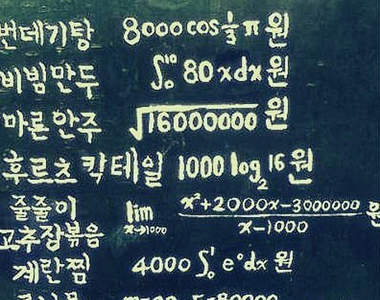 번데기탕 8000cos⅓π원
비빔만두 ∫₀¹⁰ 80xdx원
마른안주 √16000000원
후르츠칵테일 1000log₂16원
쫄쫄이 lim x→1000 x²+2000x-3000000 / x-1000 원
고추잡볶음
계란찜 4000∫₀¹ e⁰dx원